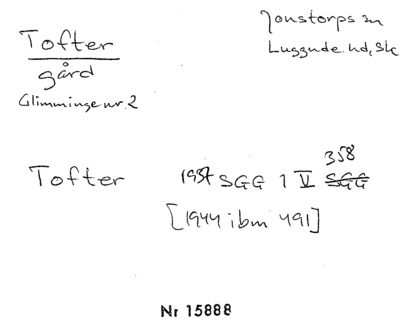 Tofter
gård
Glimminge nr. 2
Jonstorps sn
Luggude hd, Sk
Tofter 1937 SGG 1 V SGG 358
[1944 ibm 491]
Nr 15888